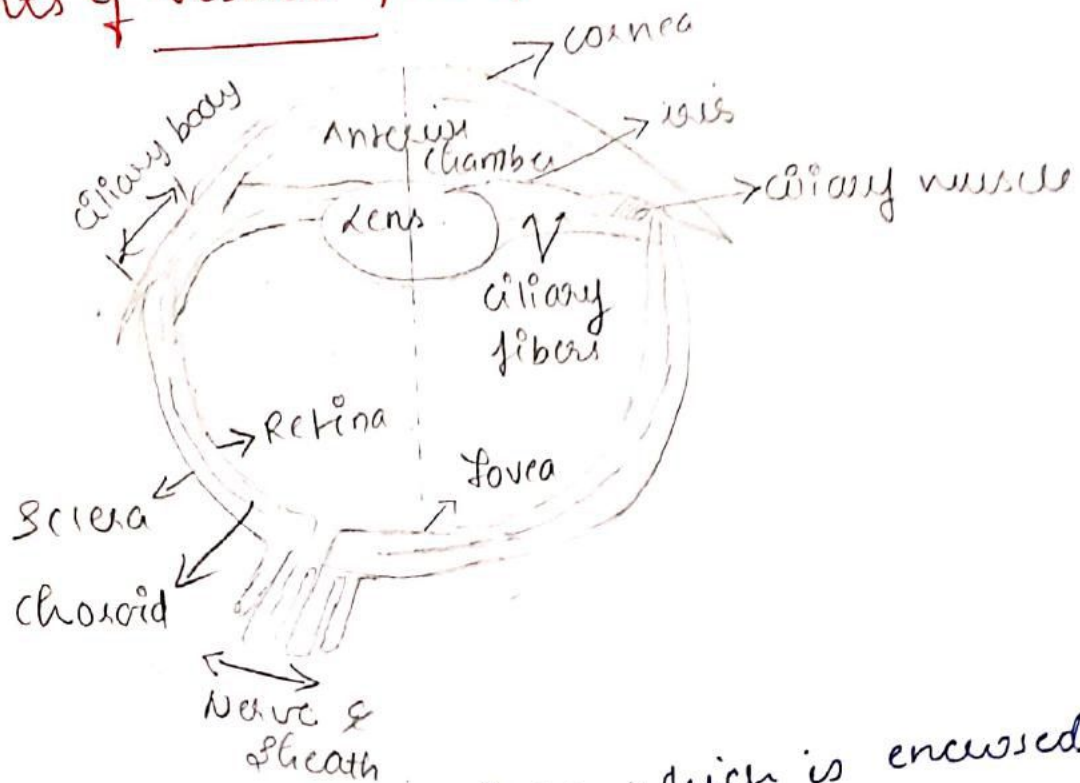 of
cornea
ciliary body
Anterior
chamber
iris
ciliary muscle
Lens
ciliary
fibers
Retina
Fovea
Sclera
Choroid
Nerve &
Sheath
which is enclosed